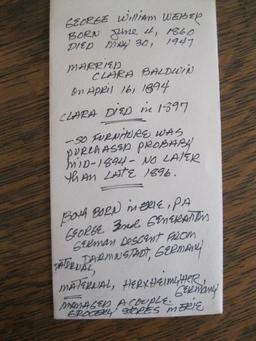 GEORGE William WEBER
BORN June 4, 1860
DIED MAY 30, 1947
MARRIED
CLARA BALDWIN
on APRIL 16, 1894
CLARA DIED in 1897
- SO FURNITURE WAS
PURCHASED PROBABLY
mid-1894 - NO LATER
than LATE 1896.
BOTH BORN in ERIE, PA
GEORGE 2nd GENERATION
GERMAN DESCENT FROM
PATERNAL, DARMNSTADT, GERMANY
MATERNAL, HERXHEIMWYHER,
GERMANY
MANAGED A COUPLE
GROCERY STORES in ERIE